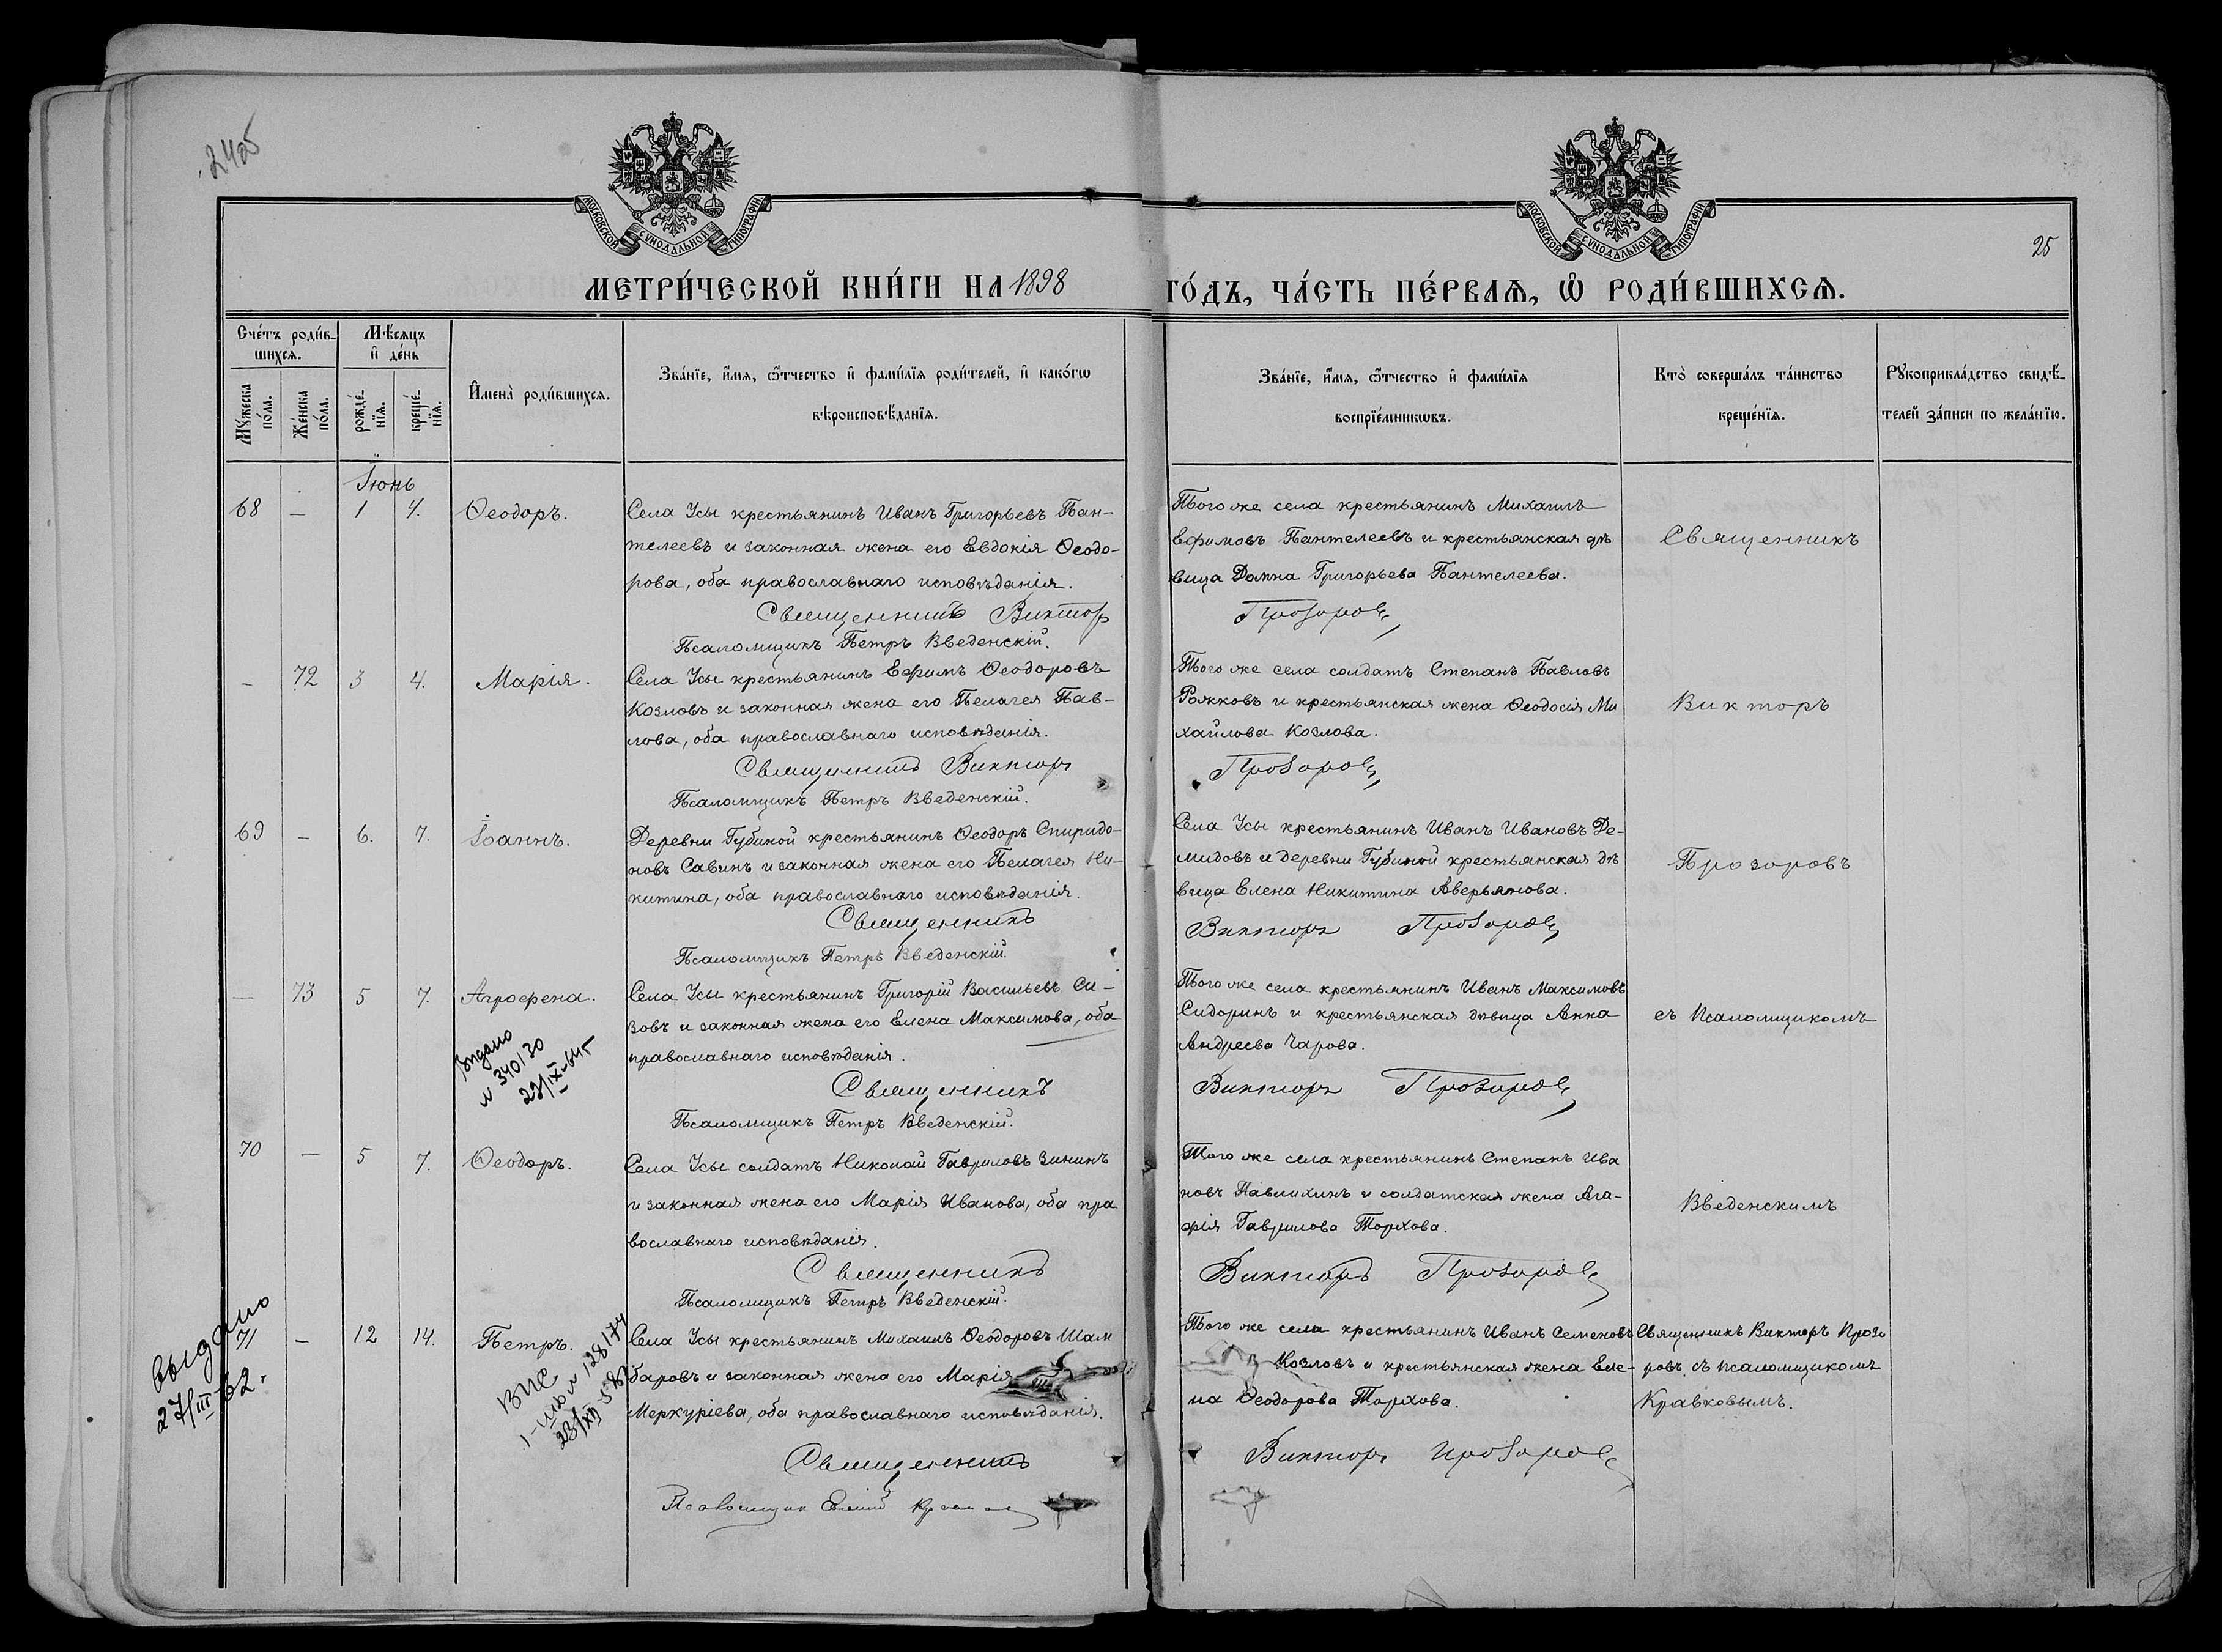 2405
МОСКОВСКОЙ СѴНОДАЛЬНОЙ ТИПОГРАФІИ
МОСКОВСКОЙ СѴНОДАЛЬНОЙ ТИПОГРАФІИ
25
МЕТРИ́ЧЕСКОЙ КНИ́ГИ НА 1898 ГО́ДЪ, ЧА́СТЬ ПЕ́РВАѦ, Ѡ҆ РОДИ́ВШИХСѦ.
Сче́тъ роди́в-
шихсѧ.
Мꙋ́жеска по́ла.
Же́нска по́ла.
Мѣ́сѧцъ
и҆ де́нь
рожде́-
нїѧ.
креще́-
нїѧ.
И҆мена̀ роди́вшихсѧ.
Зва́нїе, и҆́мѧ, ѻ҆́тчество и҆ фами́лїѧ роди́телей, и҆ како́гѡ
вѣроисповѣ́данїѧ.
Зва́нїе, и҆́мѧ, ѻ҆́тчество и҆ фами́лїѧ
воспрїе́мникѡвъ.
Кто̀ соверша́лъ та́инство
креще́нїѧ.
Рꙋкоприкла́дство свидѣ́-
телей за́писи по жела́нїю.
Іюнь
68 — 1 4. Ѳеодоръ.
Села Усы крестьянинъ Иванъ Григорьевъ Пан-
телеевъ и законная жена его Евдокія Ѳеодо-
рова, оба православнаго исповѣданія.
Священникъ Викторъ
Псаломщикъ Петръ Введенскій.
Того же села крестьянинъ Михаилъ
Ефимовъ Пантелеевъ и крестьянская дѣ
вица Домна Григорьева Пантелеева.
Прозоровъ
Священникъ
— 72 3 4. Марія.
Села Усы крестьянинъ Ефимъ Ѳеодоровъ
Козловъ и законная жена его Пелагея Пав-
лова, оба православнаго исповѣданія.
Священникъ Викторъ
Псаломщикъ Петръ Введенскій.
Того же села солдатъ Степанъ Павловъ
Рожковъ и крестьянская жена Ѳеодосія Ми
хайлова Козлова.
Прозоровъ
Викторъ
69 — 6. 7. Іоаннъ.
Деревни Губиной крестьянинъ Ѳеодоръ Спиридо-
новъ Савинъ и законная жена его Пелагея Ни-
китина, оба православнаго исповѣданія.
Священникъ
Псаломщикъ Петръ Введенскій.
Села Усы крестьянинъ Иванъ Ивановъ Де-
мидовъ и деревни Губиной крестьянская дѣ
вица Елена Никитина Аверьянова.
Викторъ Прозоровъ
Прозоровъ
— 73 5 7. Агрофена.
Выдано
N 340130
29/IX-64г
Села Усы крестьянинъ Григорій Васильевъ Си-
зовъ и законная жена его Елена Максимова, оба
православнаго исповѣданія.
Священникъ
Псаломщикъ Петръ Введенскій.
Того же села крестьянинъ Иванъ Максимовъ
Сидоринъ и крестьянская дѣвица Анна
Андреева Чарова.
Викторъ Прозоровъ
съ Псаломщикомъ
70 — 5 7. Ѳеодоръ.
Села Усы солдатъ Николай Гавриловъ Зининъ
и законная жена его Марія Иванова, оба пра
вославнаго исповѣданія.
Священникъ
Псаломщикъ Петръ Введенскій.
Того же села крестьянинъ Степанъ Ива
новъ Павлихинъ и солдатская жена Ага-
фія Гаврилова Торхова.
Викторъ Прозоровъ
Введенскимъ
выдано
27/III-62г
71 — 12 14. Петръ.
Села Усы крестьянинъ Михаилъ Ѳеодоровъ Шам
баровъ и законная жена его Марія
Меркуріева, оба православнаго исповѣданія.
Священникъ
Псаломщик
Того же села крестьянинъ Иванъ Семеновъ
Козловъ и крестьянская жена Еле-
на Ѳеодорова Торхова.
Викторъ Прозоровъ
Священникъ Викторъ Прозо
ровъ съ псаломщикомъ
Кравковымъ.